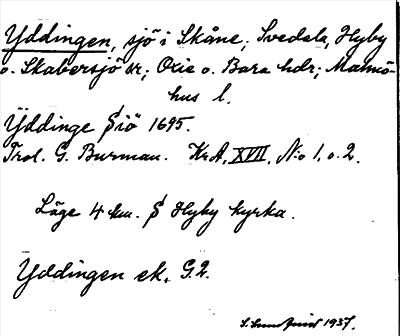 Yddingen, sjö i Skåne; Svedala, Hyby
o. Skabersjö sr; Oxie o. Bara hdr; Malmö-
hus l.
Yddinge Siö 1695.
Trol. G. Burman. Kr.A. XVII, N:o 1, o. 2.
Läge 4 km. S Hyby kyrka.
Yddingen ek. G.2.
1937.